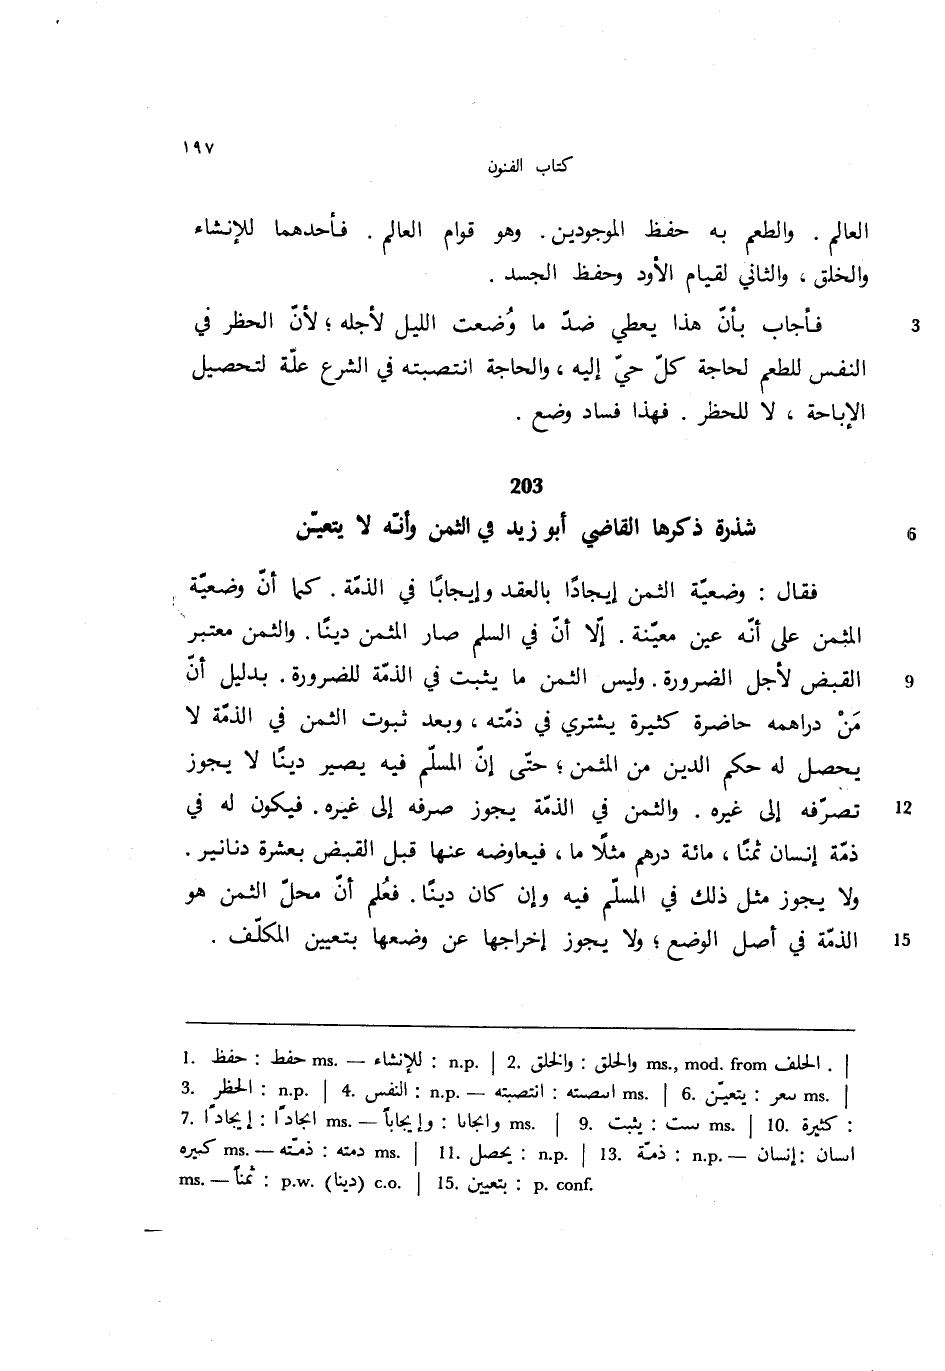 ١٩٧
كتاب الفنون
العالم . والطعم به حفظ الموجودين . وهو قوام العالم . فأحدهما للإنشاء
والخلق ، والثاني لقيام الأود وحفظ الجسد .
فأجاب بأنّ هذا يعطي ضدّ ما وُضعت الليل لأجله ؛ لأنّ الحظر في 3
النفس للطعم لحاجة كلّ حيّ إليه ، والحاجة انتصبته في الشرع علّة لتحصيل
الإباحة ، لا للحظر . فهذا فساد وضع .
203
شذرة ذكرها القاضي أبو زيد في الثمن وأنّه لا يتعيّن 6
فقال : وضعيّة الثمن إيجادًا بالعقد وإيجابًا في الذمّة . كما أنّ وضعيّة
المثمن على أنّه عين معيّنة . إلّا أنّ في السلم صار المثمن دينًا . والثمن معتبر
القبض لأجل الضرورة . وليس الثمن ما يثبت في الذمّة للضرورة . بدليل أنّ 9
مَنْ دراهمه حاضرة كثيرة يشتري في ذمّته ، وبعد ثبوت الثمن في الذمّة لا
يحصل له حكم الدين من المثمن ؛ حتّى إنّ المسلّم فيه يصير دينًا لا يجوز
تصرّفه إلى غيره . والثمن في الذمّة يجوز صرفه إلى غيره . فيكون له في 12
ذمّة إنسان ثمنًا ، مائة درهم مثلًا ما ، فيعاوضه عنها قبل القبض بعشرة دنانير .
ولا يجوز مثل ذلك في المسلّم فيه وإن كان دينًا . فعُلم أنّ محلّ الثمن هو
الذمّة في أصل الوضع ؛ ولا يجوز إخراجها عن وضعها بتعيين المكلّف . 15
1. حفظ : حفط ms. — للإنشاء : n.p. | 2. والخلق : والخلق ms., mod. from الخلف . |
3. الحظر : n.p. | 4. النفس : n.p. — انتصبته : اسصىته ms. | 6. يتعيّن : ىىعر ms. |
7. إيجادًا : اىجادا ms. — وإيجاباً : واىجاىا ms. | 9. يثبت : ىىىت ms. | 10. كثيرة :
كىىره ms. — ذمّته : دمته ms. | 11. يحصل : n.p. | 13. ذمّة : n.p. — إنسان : اىسان
ms. — ثمناً : p.w. (دىنا) c.o. | 15. بتعيين : p. conf.